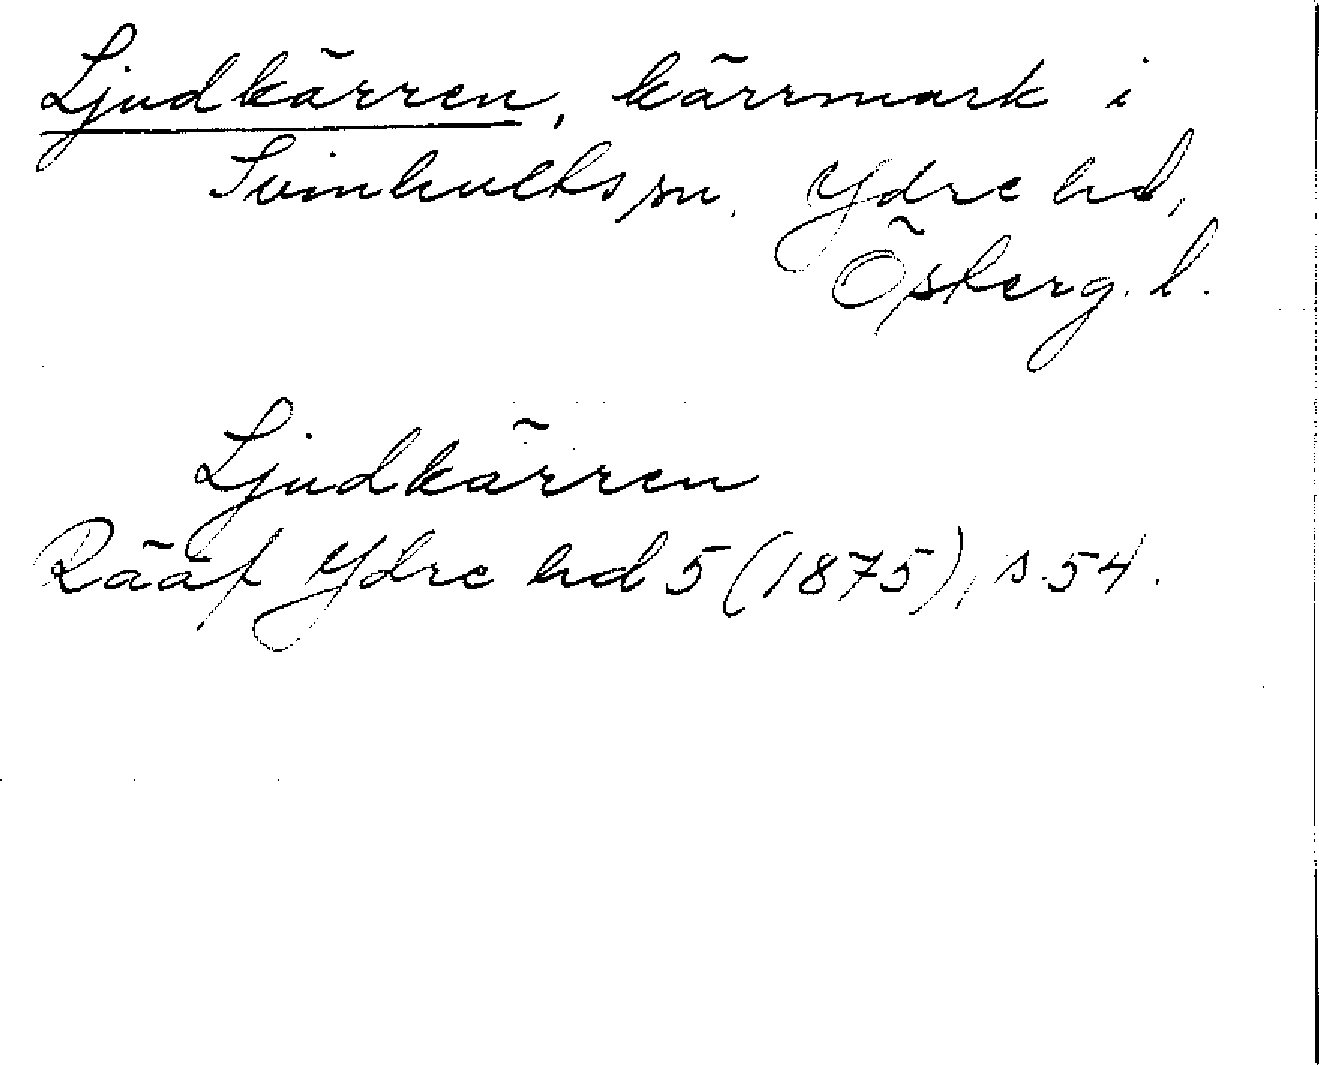 Ljudkärren, kärrmark i
Svinhults sn. Ydre hd,
Österg. l.
Ljudkärren
Rääf Ydre hd 5 (1875), s. 54.